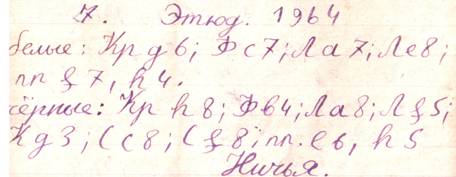 7. Этюд. 1964
белые: Кр д6; Фс7; Ла7; Ле8;
пп f7, h4.
чёрные: Кр h8; Фb4; Ла8; Лf5;
Кд3; Сс8; Сf8; пп. е6, h5
Ничья.